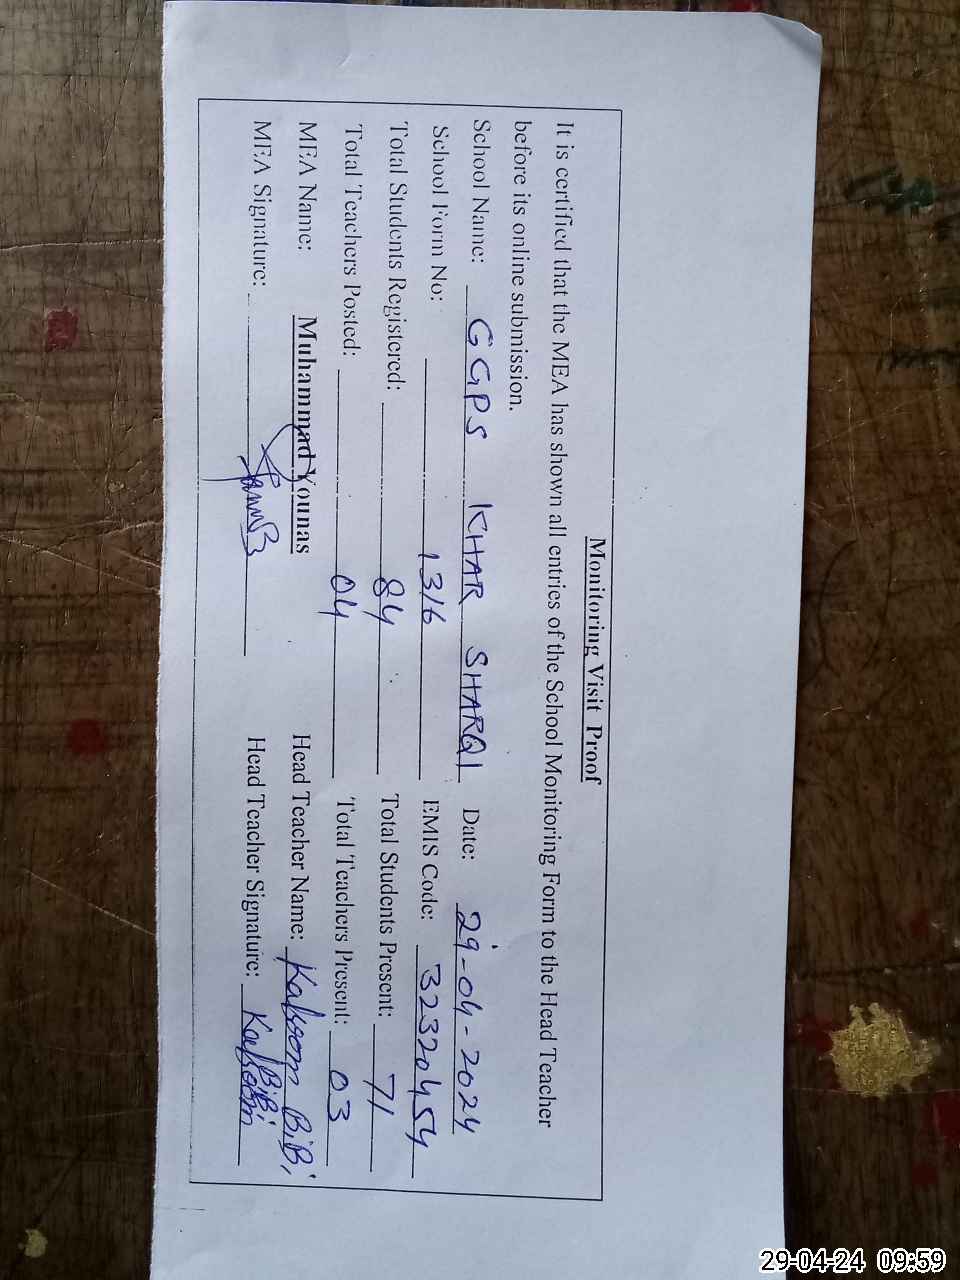 Monitoring Visit Proof
It is certified that the MEA has shown all entries of the School Monitoring Form to the Head Teacher
before its online submission.
School Name: GGPS KHAR SHARQI Date: 29-04-2024
School Form No: 1316 EMIS Code: 32320454
Total Students Registered: 84 Total Students Present: 71
Total Teachers Posted: 04 Total Teachers Present: 03
MEA Name: Muhammad Younas Head Teacher Name: Kalsoom BiBi
MEA Signature: Head Teacher Signature: Kalsoom BiBi
29-04-24 09:59